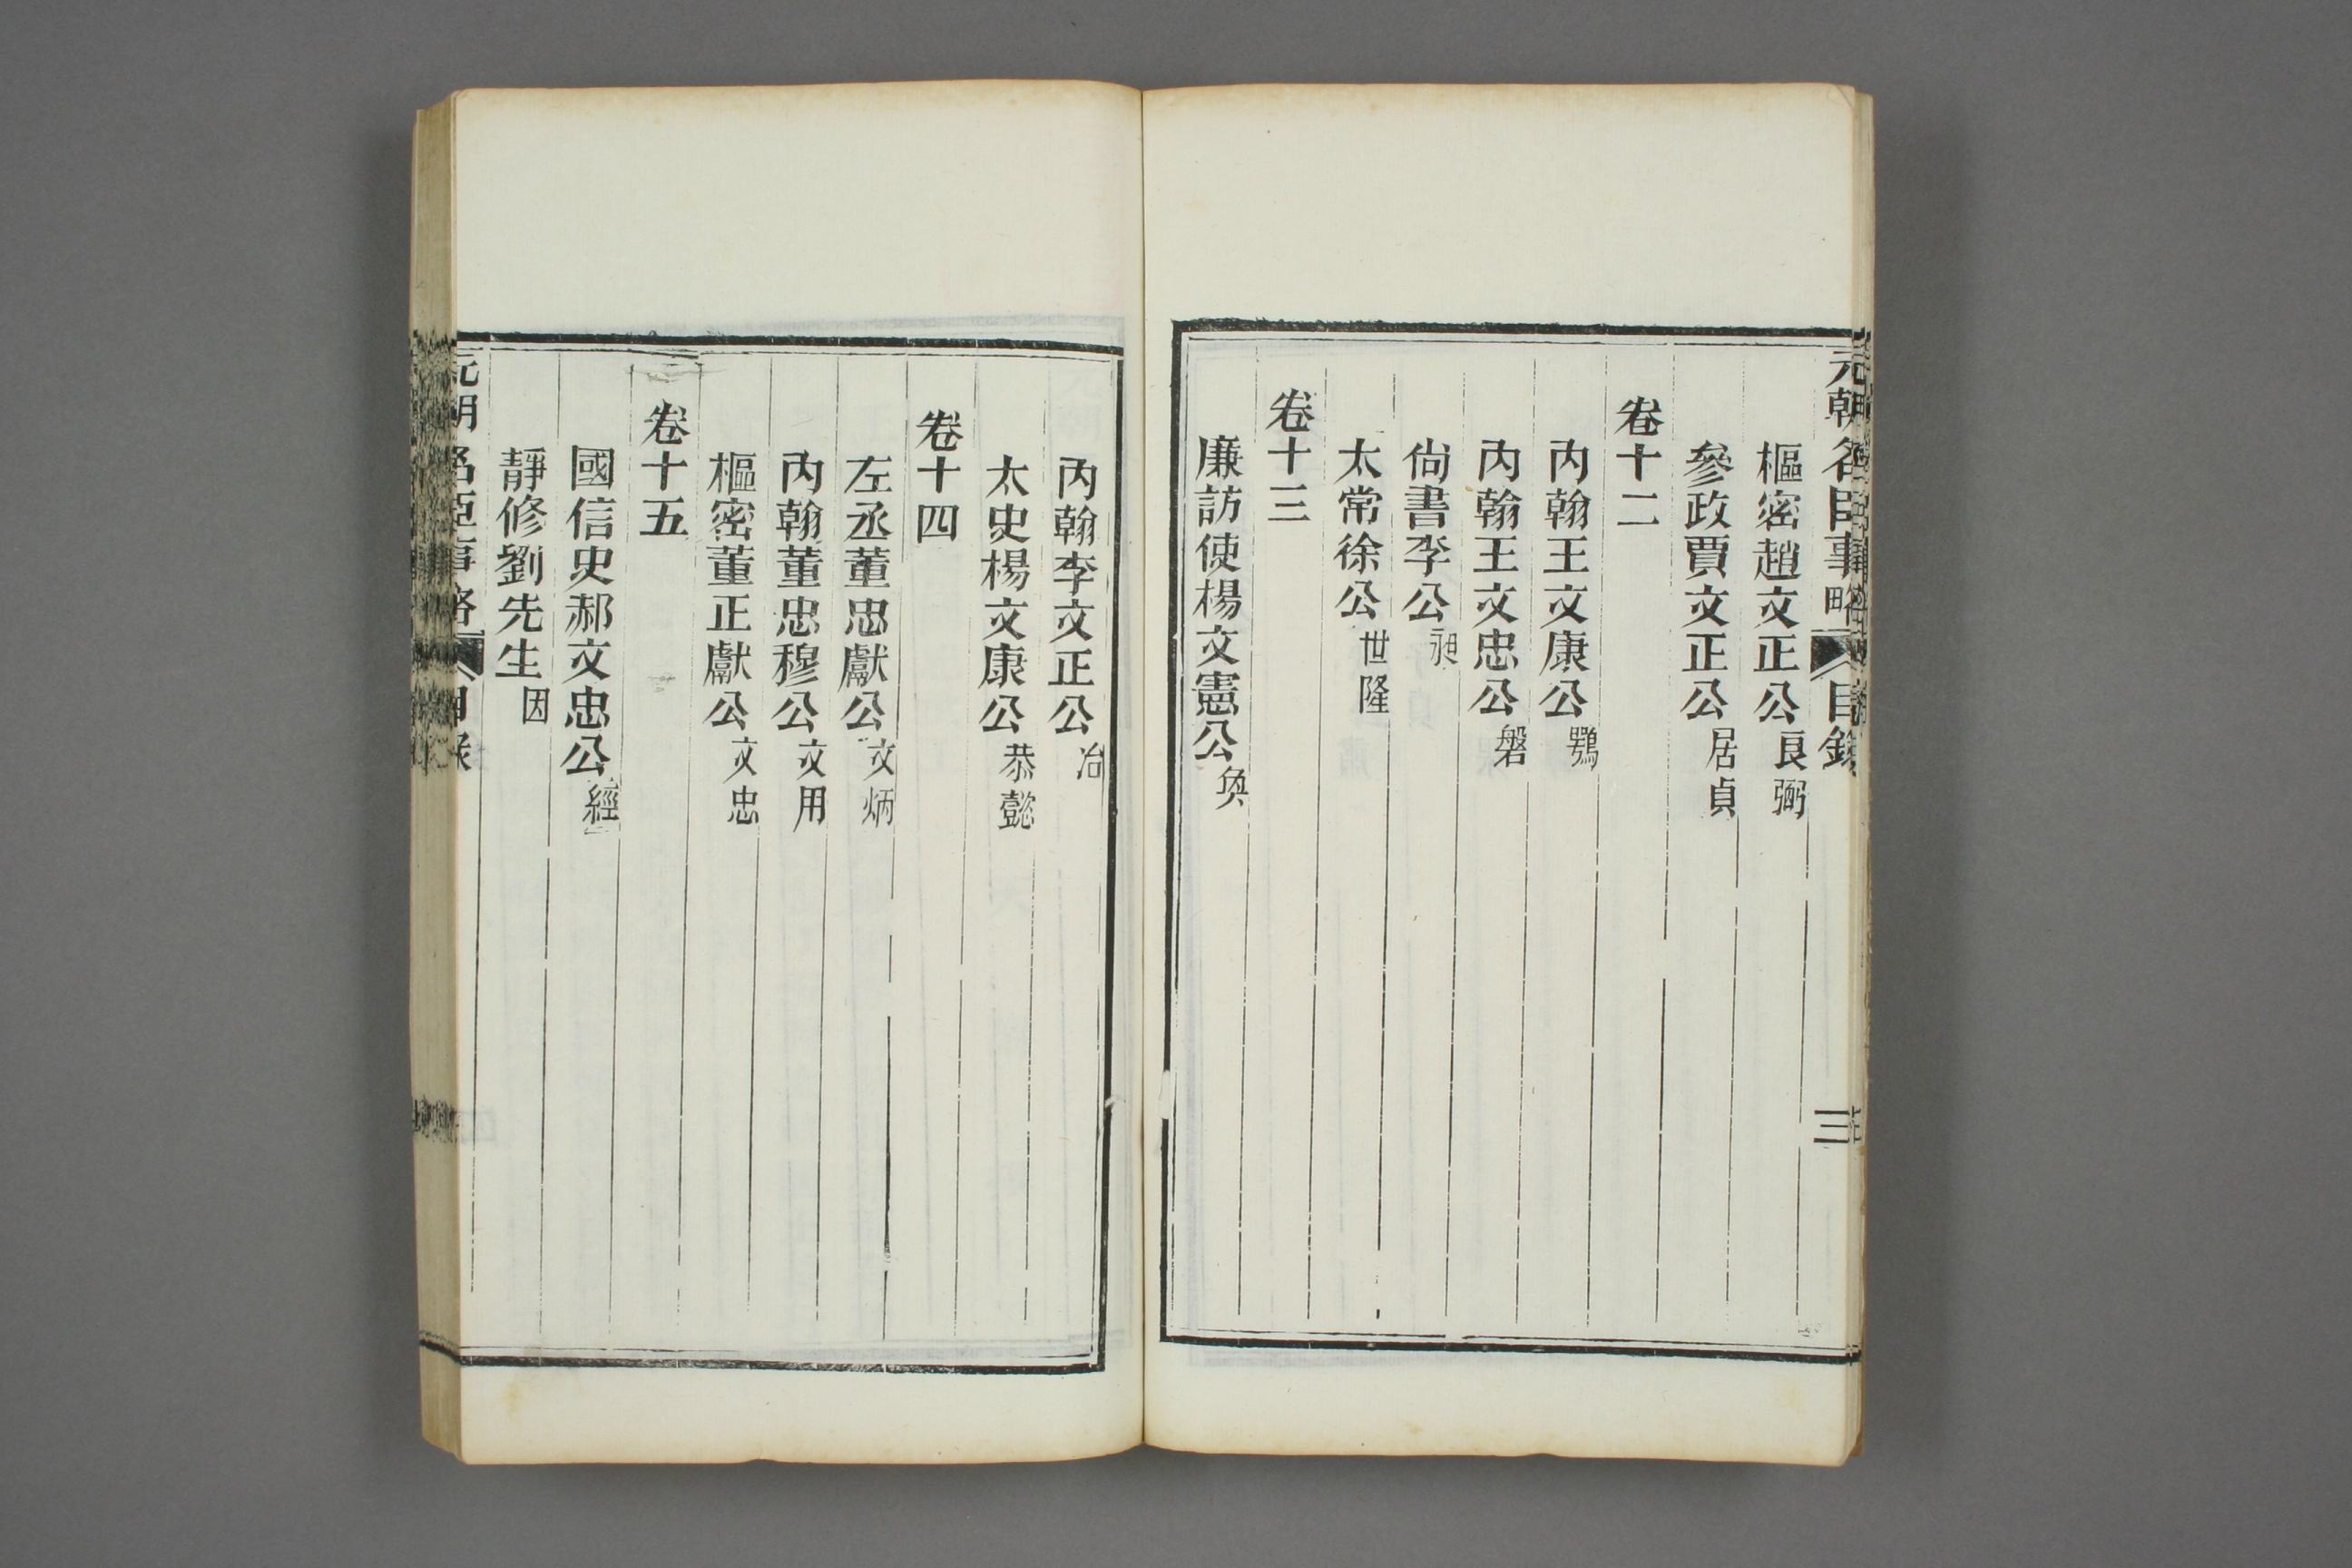 元朝名臣事略 目錄 三
樞密趙文正公良弼
參政賈文正公居貞
卷十二
內翰王文康公鶚
內翰王文忠公磐
尙書李公昶
太常徐公世隆
卷十三
廉訪使楊文憲公奐
內翰李文正公冶
太史楊文康公恭懿
卷十四
左丞董忠獻公文炳
內翰董忠穆公文用
樞密董正獻公文忠
卷十五
國信史郝文忠公經
靜修劉先生因
元朝名臣事略 目錄